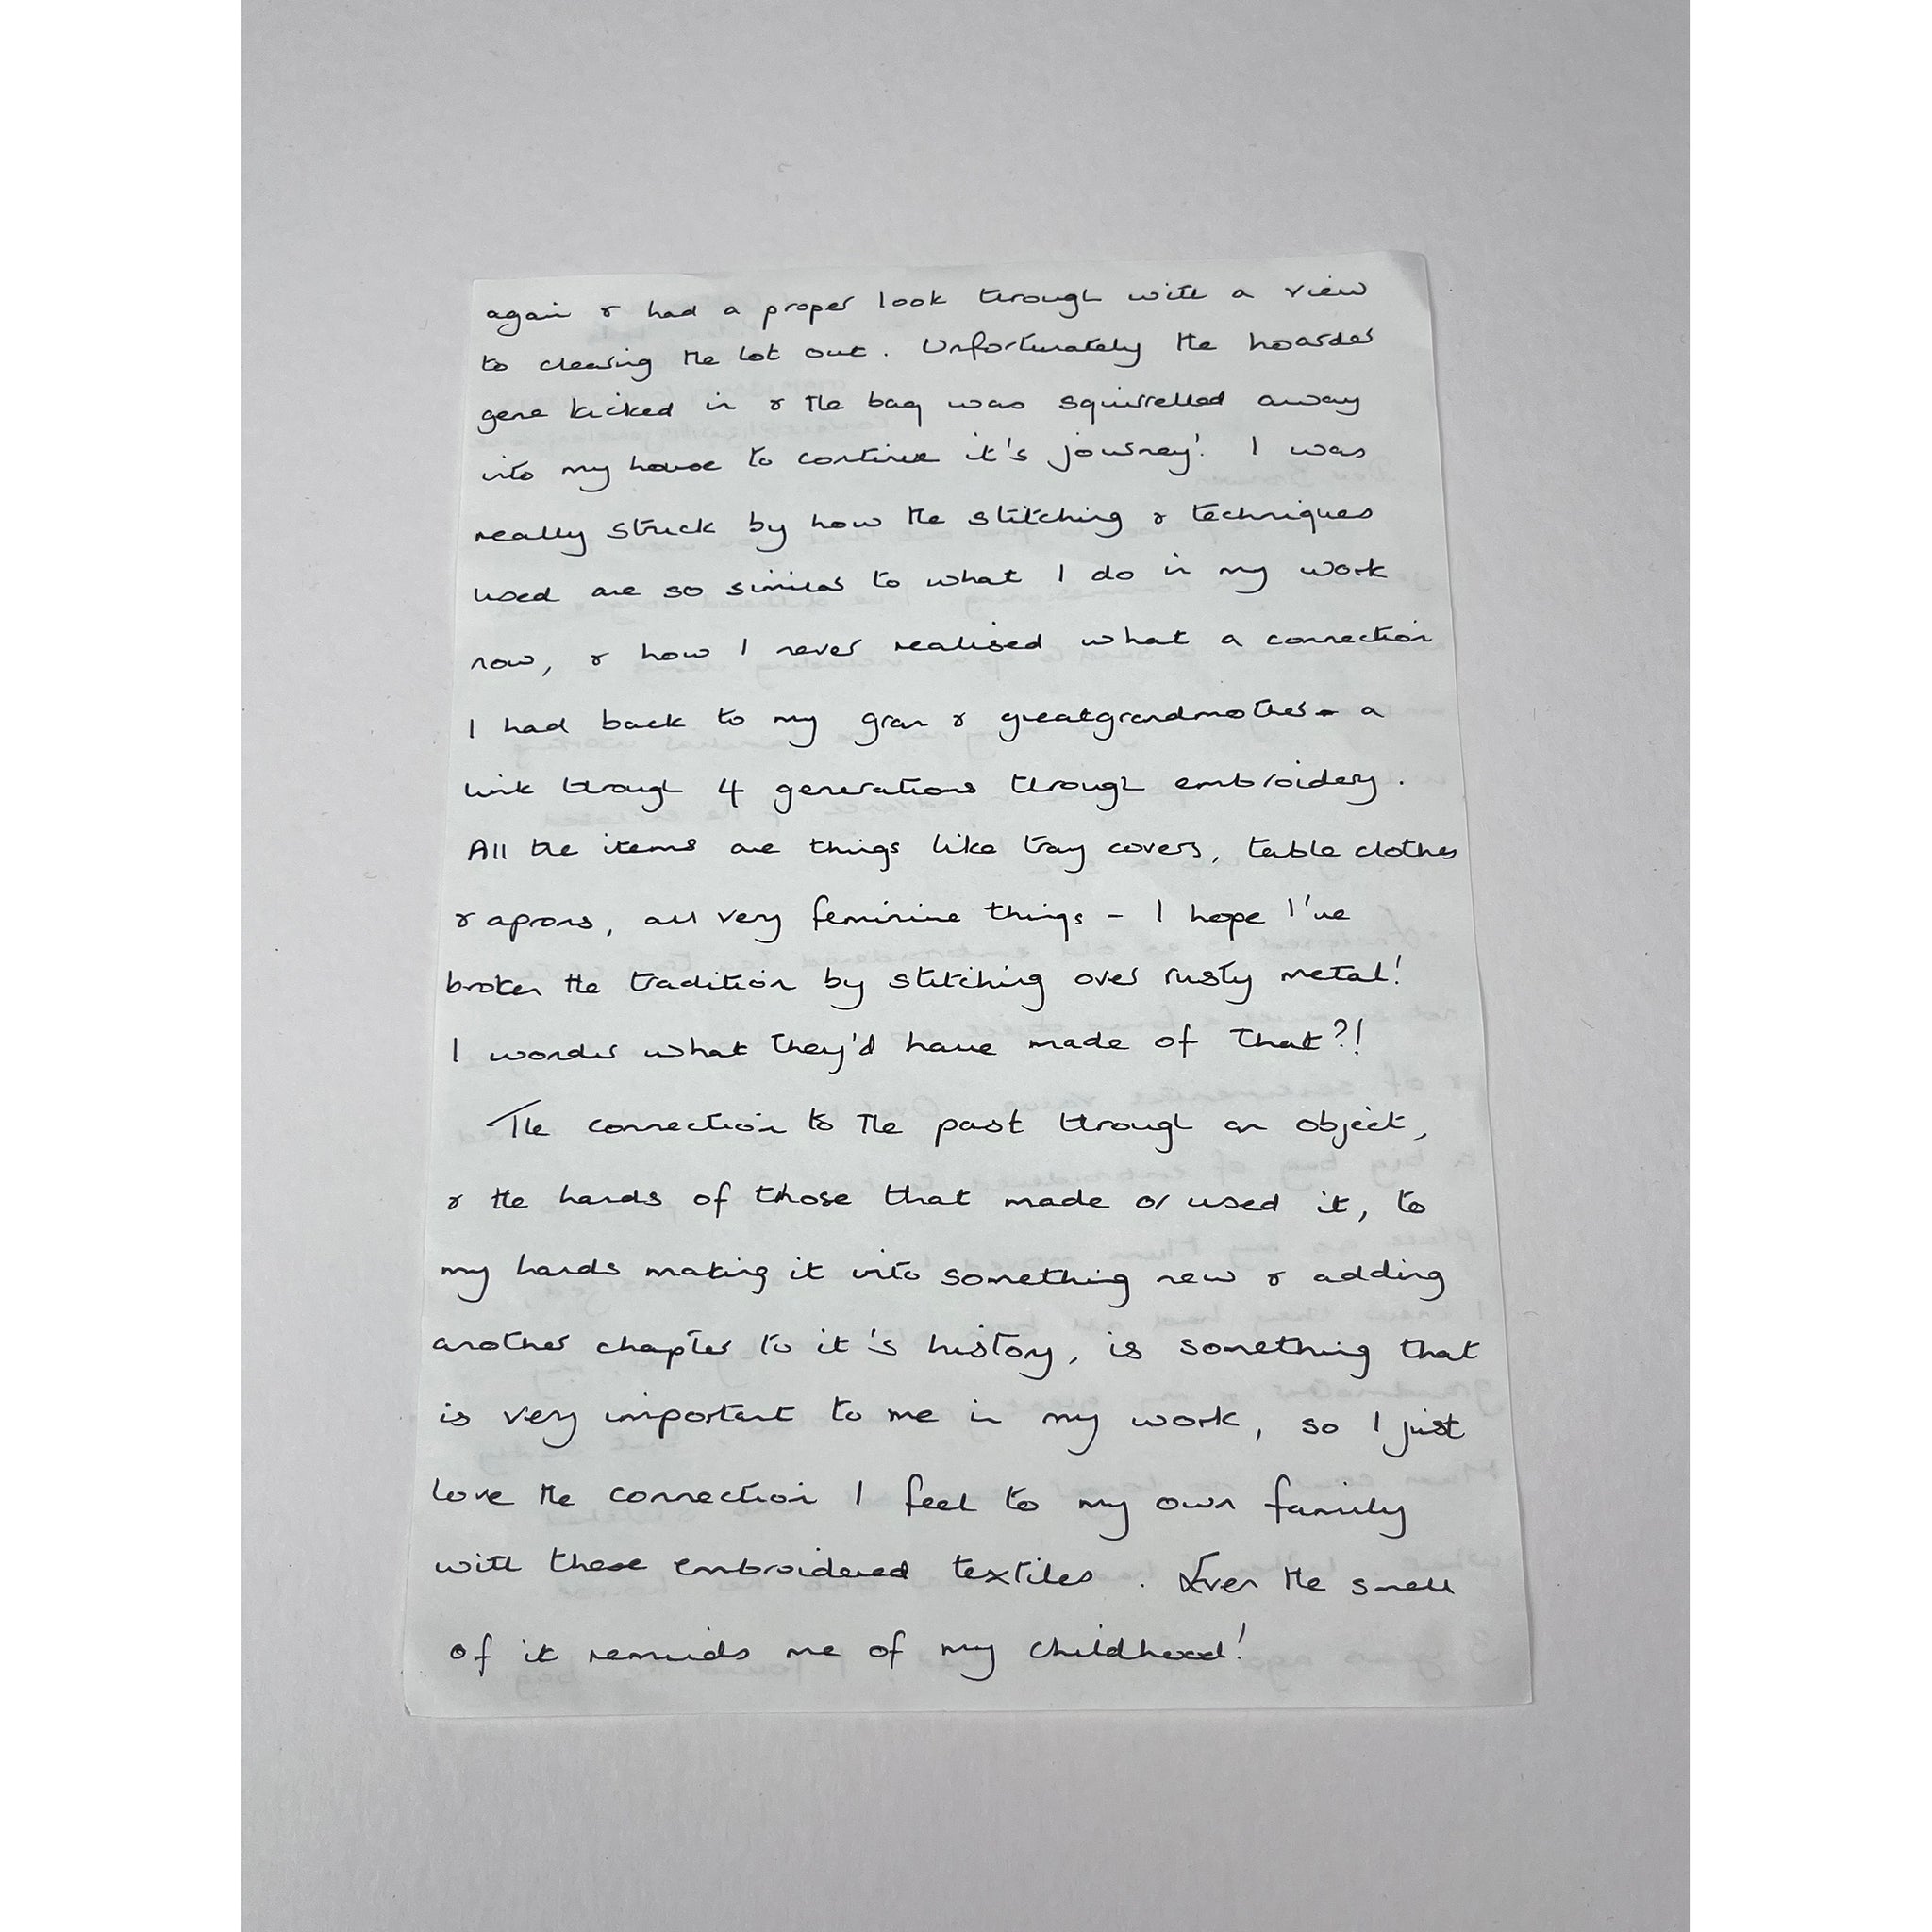 again & had a proper look through with a view
to clearing the lot out. Unfortunately the hoarder
gene kicked in & the bag was squirrelled away
into my house to continue it's journey! I was
really struck by how the stitching & techniques
used are so similar to what I do in my work
now, & how I never realised what a connection
I had back to my gran & greatgrandmother - a
link through 4 generations through embroidery.
All the items are things like tray covers, table clothes
& aprons, all very feminine things - I hope I've
broken the tradition by stitching over rusty metal!
I wonder what they'd have made of that?!
The connection to the past through an object,
& the hands of those that made or used it, to
my hands making it into something new & adding
another chapter to it's history, is something that
is very important to me in my work, so I just
love the connection I feel to my own family
with these embroidered textiles. Even the smell
of it reminds me of my childhood!